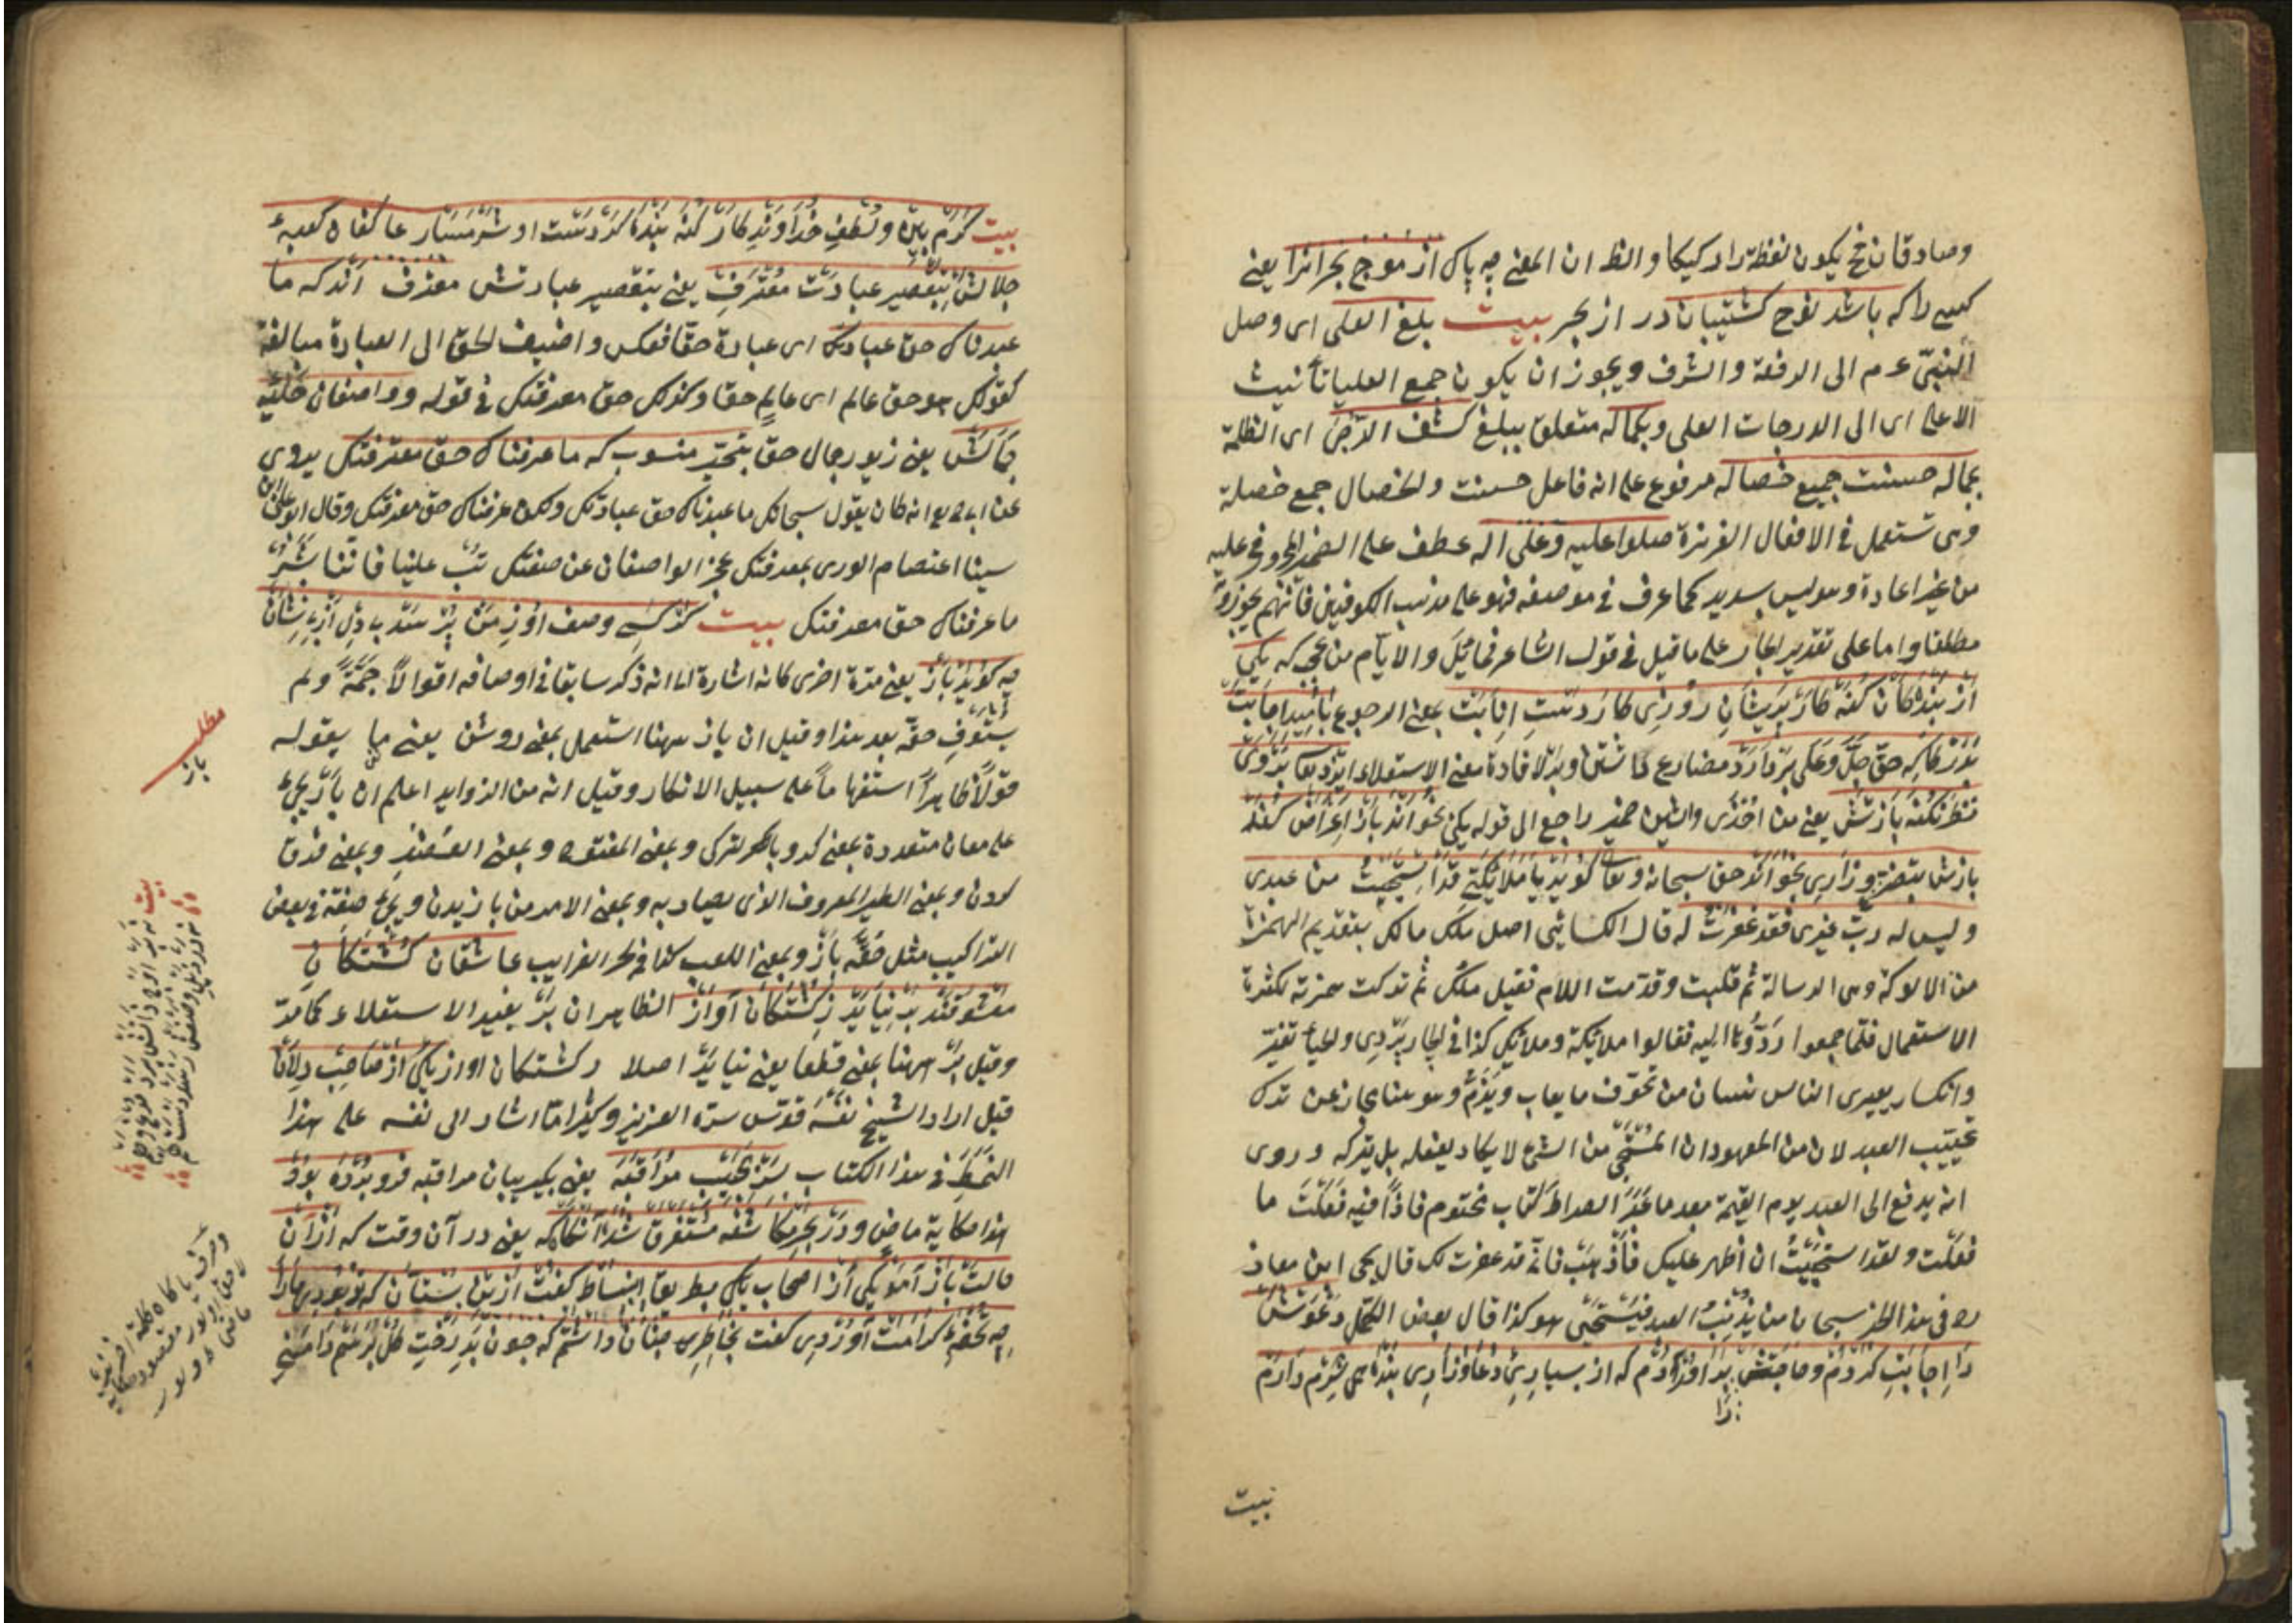 وصادقان فح يكون لفظة را ركيكا والظ ان المعنى چه باك از موج بحر انرا يعنى
كسى را كه باشد نوح كشتيبان در از بحر بيت بلغ العلى اى وصل
النبى عم الى الرفعة والشرف ويجوز ان يكون جمع العليا تأنيث
الاعلى اى الى الدرجات العلى وبكماله متعلق ببلغ كشف الدجى اى الظلمة
بجماله حسنت جميع خصاله مرفوع على انه فاعل حسنت والخصال جمع خصلة
وهى تستعمل فى الافعال صلوا عليه وعلى اله عطف على الضمير المجرور فى عليه
من غير اعادة وليس بسديد كما عرف فى موضعه فهو على مذهب الكوفيين فانهم يجوزونه
مطلقا واما على تقدير الجار على ما قيل فى قول الشاعر فما بك والايام من عجب كه يكى
از بندكان كنه كار پريشان روزكار دست انابت بمعنى الرجوع باميد اجابت
بدركاه حق جل وعلى بردارد مضارع داشتن وبر لافادة معنى الاستعلاء ايزد تعا بروى
نظر نكند بازش يعنى من اخرى والشين ضمير راجع الى قوله يكى بخواند باز اعراض كند
بازش بتضرع وزارى بخواند حق سبحانه وتعا كويد يا ملائكتى قد استحييت من عبدى
وليس له رب غيرى فقد غفرت له قال الكسائى اصل ملك مالك بتقديم الهمزة
من الالوكة وهى الرسالة ثم قلبت وقدمت اللام فقيل ملك ثم تركت همزته لكثرة
الاستعمال فلما جمعوا ردوها اليه فقالوا ملائكة وملائك كذا فى الجاربردى والحياء تغير
وانكسار يعترى الناس من تخوف ما يعاب ويذم وهو هنا مجاز عن ترك
تخييب العبد لان من المعهود ان المستحى من الشئ لا يكاد يفعله بل يتركه وروى
انه يدفع الى العبد يوم القيمة بعد ما عبر الصراط كتاب مختوم فاذا فيه فعلت ما
فعلت ولقد استحييت ان اظهر عليك فاذهب فانه قد غفرت لك قال يحيى ابن معاذ
ره فى هذا الخبر سبحان من يذنب العبد فيستحيى هو كذا قال بعض الكمل دعوتش
را اجابت كردم وحاجتش برآوردم كه از بسيارى دعا وزارى بنده همى شرم دارم
بيت
بيت كرم بين ولطف خداوندكار كنه بنده كردست او شرمسار عاكفان كعبهء
جلالش بتقصير عبادت معترف يعنى بتقصير عبادتش معترف اند كه ما
عبدناك حق عبادتك اى عبادة حقا فعكس واضيف الحق الى العبادة مبالغة
كقولك هو حق عالم اى عالم حقا وكذلك حق معرفتك فى قوله وواصفان حليهء
جمالش يعنى زيور جمال حق بتحير منسوب كه ما عرفناك حق معرفتك يروى
انه كان يقول سبحانك ما عبدناك حق عبادتك ولكن عرفناك حق معرفتك وقال ابو على ابن
سينا اعتصام الورى بمعرفتك عجز الواصفان عن صفتك تب علينا فاننا بشر
ما عرفناك حق معرفتك بيت كر كسى وصف او زمن پرسد بى دل از بى نشان
چه كويد باز يعنى مرة اخرى كانه اشارة الى انه ذكر سابقا فى اوصافه اقوالا جمة ولم
يستوف حقه بعد هذا وقيل ان باز ههنا استعمل بمعنى روشن يعنى ما يقوله
قولا ظاهرا استفهاما على سبيل الانكار وقيل انه من الزوايد اعلم ان باز يجئ
على معان متعددة بمعنى كرو بالتركى وبمعنى المفتوح وبمعنى وبمعنى فرق
كردن وبمعنى الطير المعروف الذى يصاد به وبمعنى الامر من بازيدن ويجئ صفة فى بعض
التراكيب مثل حقه باز وبمعنى اللعب كذا فى بحر الغرايب عاشقان كشتكان
معشوقند بر نيايد ز كشتكان آواز الظاهر ان بر يفيد الاستعلاء كما مر
وقيل بر ههنا بمعنى قطعا يعنى نيايد اصلا ز كشتكان اواز يكى از صاحب دلان
قيل اراد الشيخ نفسه قدس سره العزيز وكثيرا ما اشار الى نفسه على هذا
النمط فى هذا الكتاب سر بجيب مراقبه يعنى بكريبان مراقبه فرو برده بود
هذا حكاية ماض ودر بحر مكاشفه مستغرق شده آنكاه كه يعنى در آن وقت كه از آن
حالت باز آمد يكى از اصحاب يكى بطريق انبساط كفت ازين بستان كه تو بودى ما را
چه تحفه كرامت آوردى كفت بخاطر داشتم كه چون بدرخت كل برسم دامنى
مطلب
باز